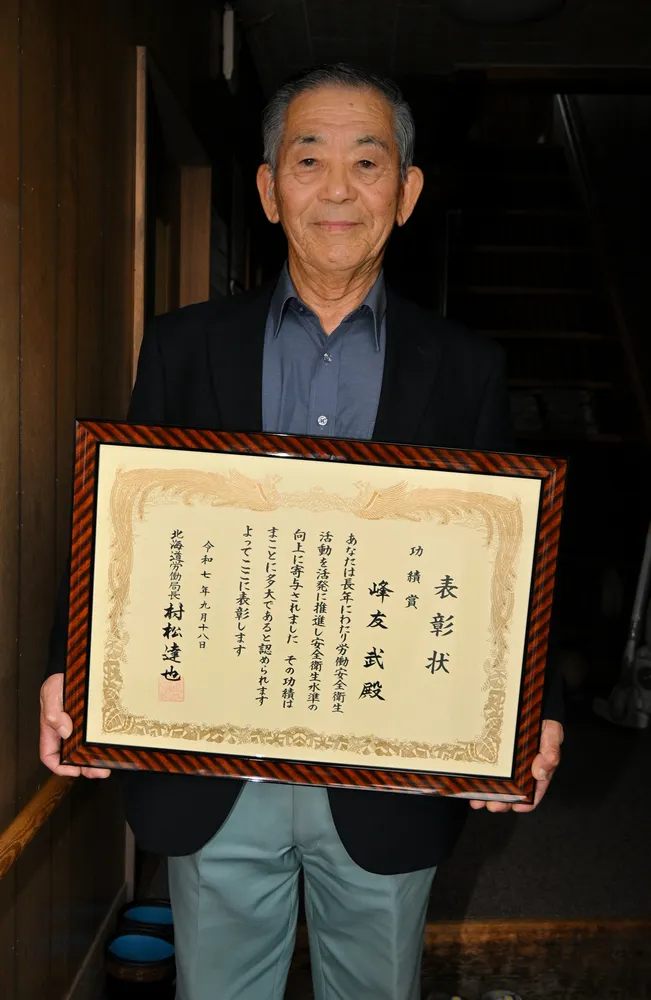 表彰状
功績賞
峰友 武 殿
あなたは長年にわたり労働安全衛生
活動を活発に推進し安全衛生水準の
向上に寄与されました その功績は
まことに多大であると認められます
よってここに表彰します
令和七年九月十八日
北海道労働局長 村松達也